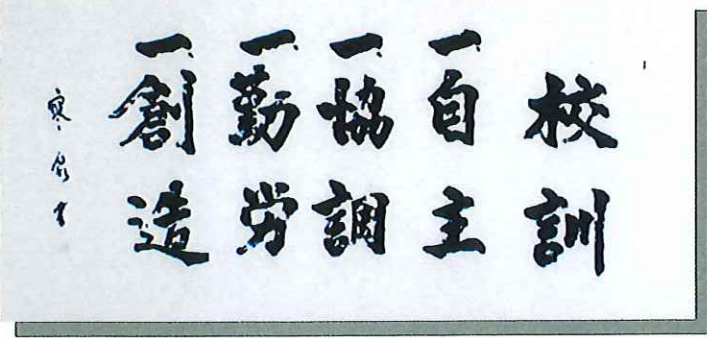 校訓
一自主
一協調
一勤労
一創造
寒泉書